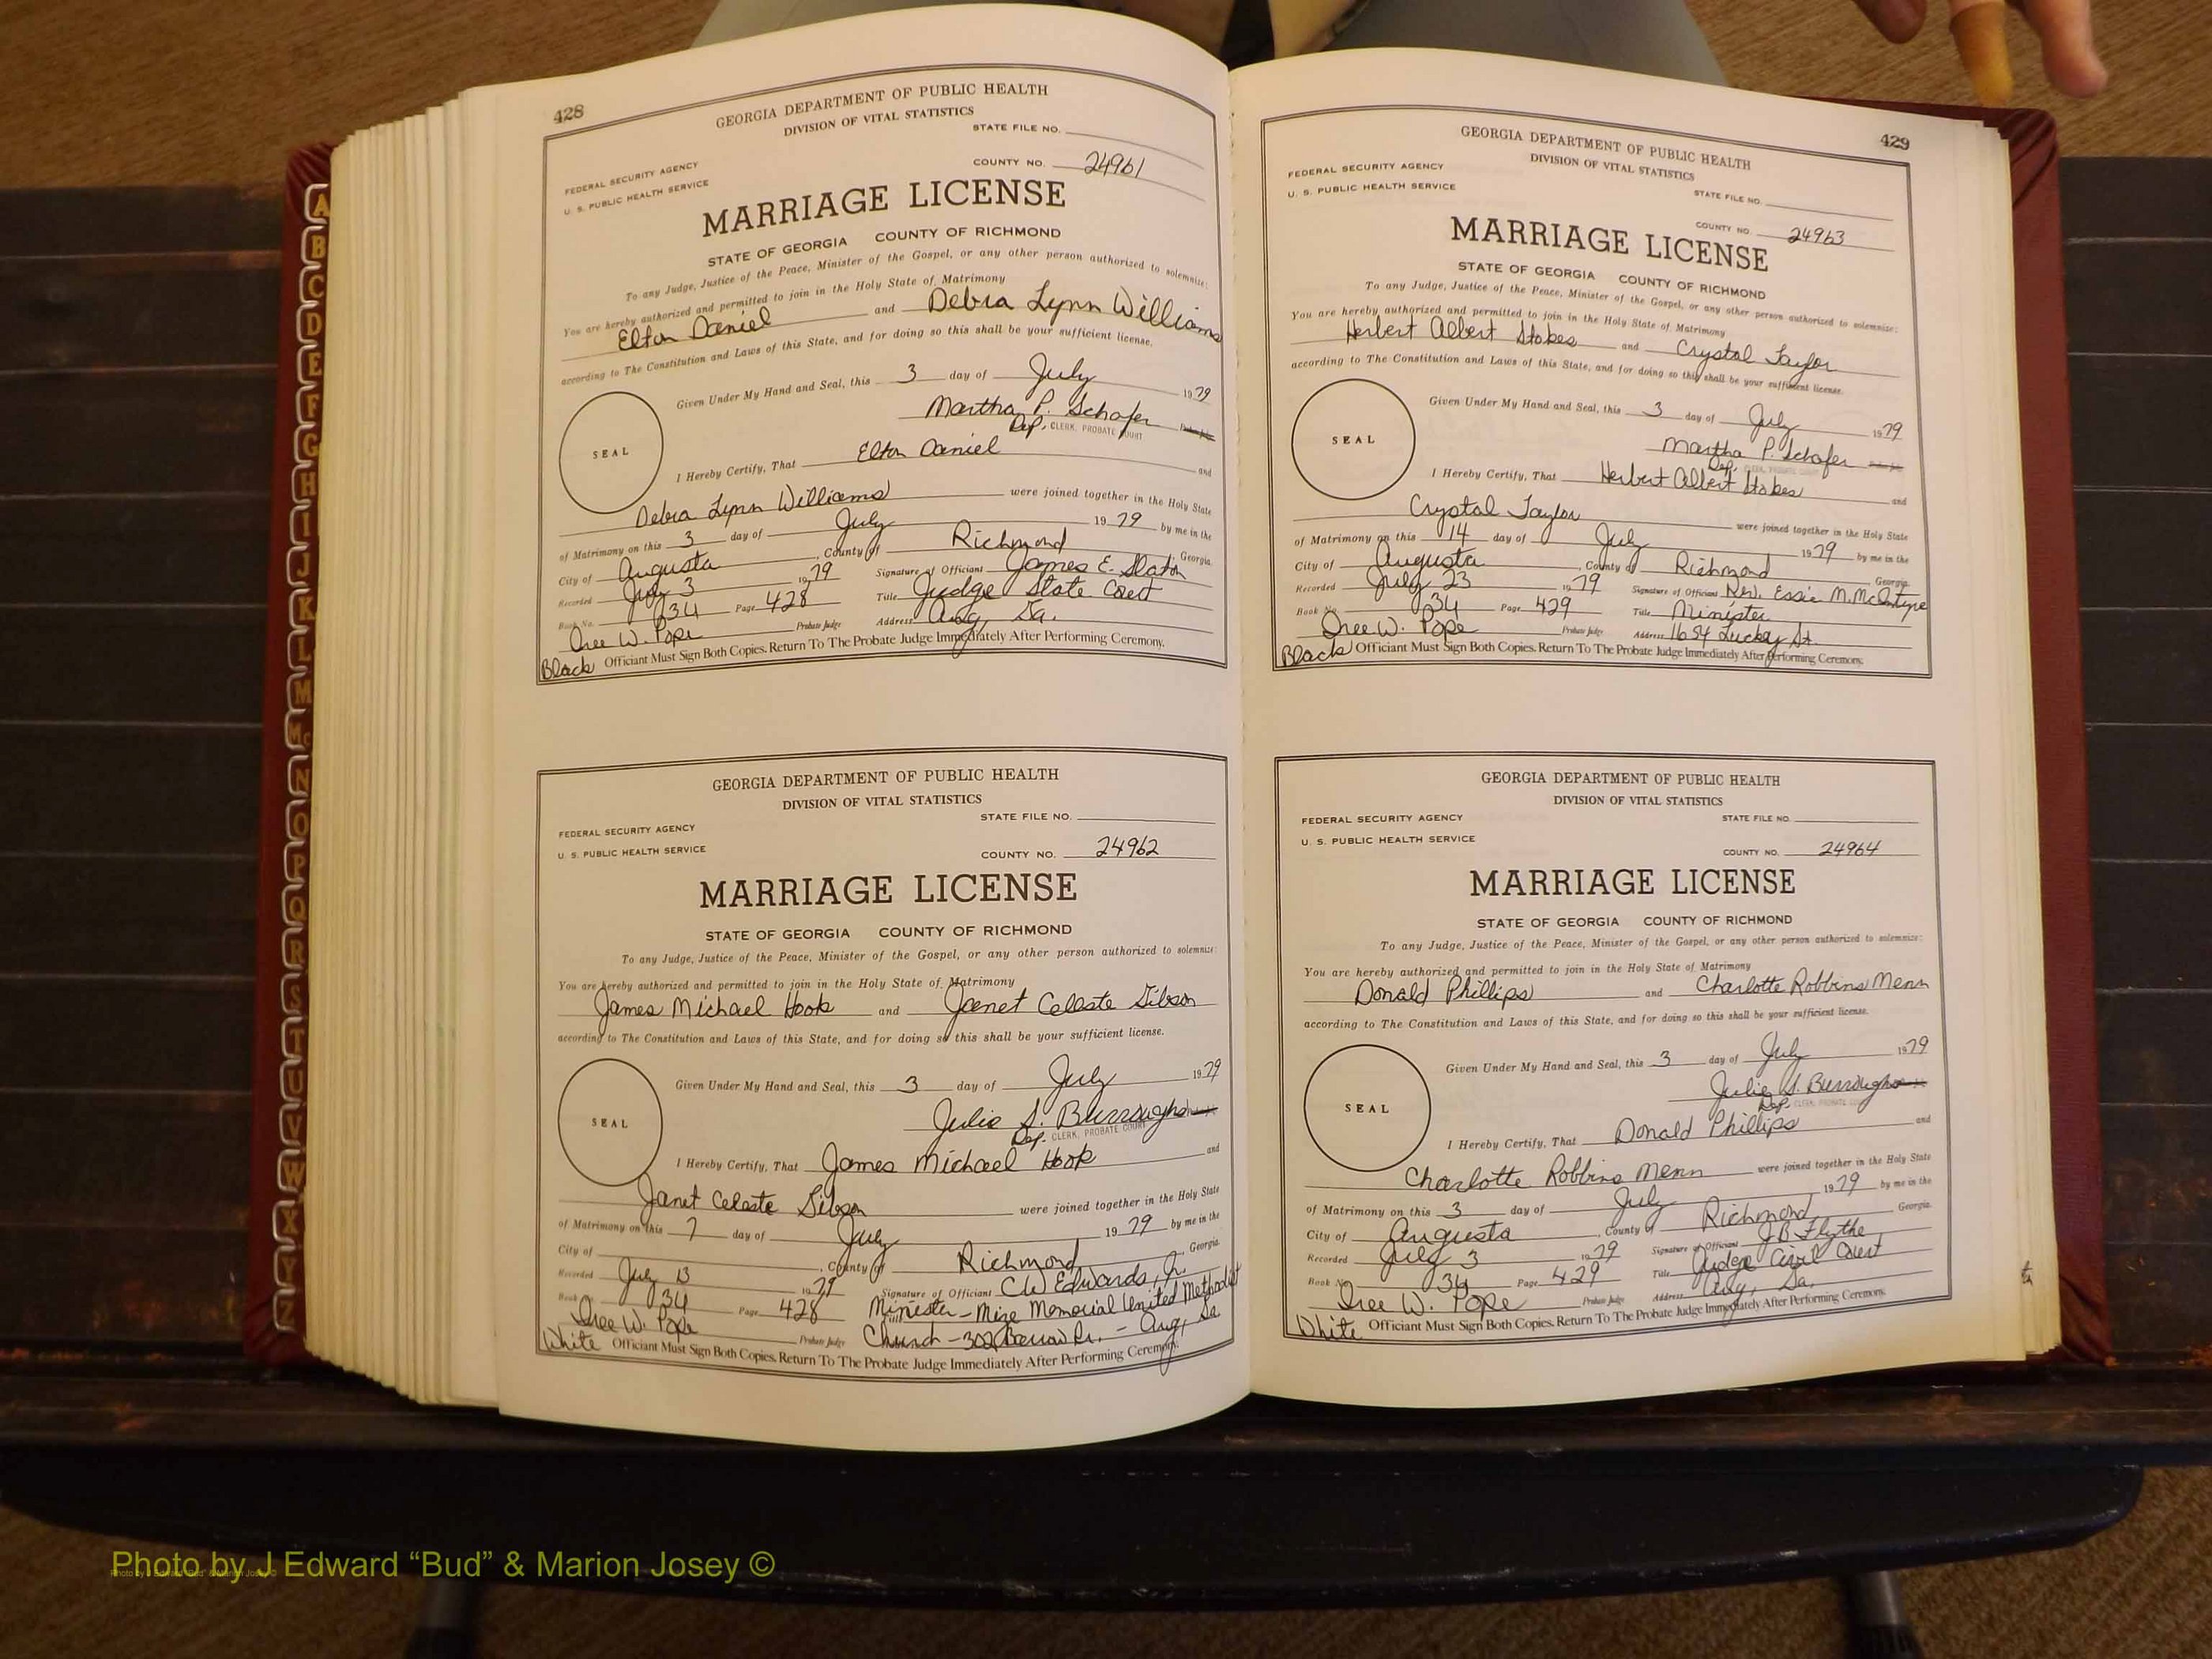 428
GEORGIA DEPARTMENT OF PUBLIC HEALTH
DIVISION OF VITAL STATISTICS
STATE FILE NO.
FEDERAL SECURITY AGENCY
U. S. PUBLIC HEALTH SERVICE
COUNTY NO. 24961
MARRIAGE LICENSE
STATE OF GEORGIA COUNTY OF RICHMOND
To any Judge, Justice of the Peace, Minister of the Gospel, or any other person authorized to solemnize:
You are hereby authorized and permitted to join in the Holy State of Matrimony
Elton Daniel and Debra Lynn Williams
according to The Constitution and Laws of this State, and for doing so this shall be your sufficient license.
Given Under My Hand and Seal, this 3 day of July 1979
Martha P. Schafer
Dep. CLERK, PROBATE COURT
SEAL
I Hereby Certify, That Elton Daniel and
Debra Lynn Williams were joined together in the Holy State
of Matrimony on this 3 day of July 1979 by me in the
City of Augusta, County of Richmond, Georgia.
Recorded July 3 1979 Signature of Officiant James E. Slaton
Book No. 34 Page 428 Title Judge State Court
Iree W. Pope Probate Judge Address Aug, Ga.
Black Officiant Must Sign Both Copies. Return To The Probate Judge Immediately After Performing Ceremony.
GEORGIA DEPARTMENT OF PUBLIC HEALTH
DIVISION OF VITAL STATISTICS
STATE FILE NO.
FEDERAL SECURITY AGENCY
U. S. PUBLIC HEALTH SERVICE
COUNTY NO. 24962
MARRIAGE LICENSE
STATE OF GEORGIA COUNTY OF RICHMOND
To any Judge, Justice of the Peace, Minister of the Gospel, or any other person authorized to solemnize:
You are hereby authorized and permitted to join in the Holy State of Matrimony
James Michael Hook and Janet Celeste Gibson
according to The Constitution and Laws of this State, and for doing so this shall be your sufficient license.
Given Under My Hand and Seal, this 3 day of July 1979
Julie S. Burroughs
Dep. CLERK, PROBATE COURT
SEAL
I Hereby Certify, That James Michael Hook and
Janet Celeste Gibson were joined together in the Holy State
of Matrimony on this 7 day of July 1979 by me in the
City of , County of Richmond, Georgia.
Recorded July 13 1979 Signature of Officiant CW Edwards, Jr.
Book No. 34 Page 428 Minister - Mize Memorial United Methodist
Iree W. Pope Probate Judge Church - 302 Barrow Dr. - Aug, Ga
White Officiant Must Sign Both Copies. Return To The Probate Judge Immediately After Performing Ceremony.
429
GEORGIA DEPARTMENT OF PUBLIC HEALTH
DIVISION OF VITAL STATISTICS
FEDERAL SECURITY AGENCY
U. S. PUBLIC HEALTH SERVICE
STATE FILE NO.
COUNTY NO. 24963
MARRIAGE LICENSE
STATE OF GEORGIA COUNTY OF RICHMOND
To any Judge, Justice of the Peace, Minister of the Gospel, or any other person authorized to solemnize:
You are hereby authorized and permitted to join in the Holy State of Matrimony
Herbert Albert Stokes and Crystal Taylor
according to The Constitution and Laws of this State, and for doing so this shall be your sufficient license.
Given Under My Hand and Seal, this 3 day of July 1979
Martha P. Schafer
Dep. CLERK, PROBATE COURT
SEAL
I Hereby Certify, That Herbert Albert Stokes and
Crystal Taylor were joined together in the Holy State
of Matrimony on this 14 day of July 1979 by me in the
City of Augusta, County of Richmond, Georgia.
Recorded July 23 1979 Signature of Officiant Rev. Essie M. McIntyre
Book No. 34 Page 429 Title Minister
Iree W. Pope Probate Judge Address 1654 Luckey St.
Black Officiant Must Sign Both Copies. Return To The Probate Judge Immediately After Performing Ceremony.
GEORGIA DEPARTMENT OF PUBLIC HEALTH
DIVISION OF VITAL STATISTICS
FEDERAL SECURITY AGENCY
STATE FILE NO.
U. S. PUBLIC HEALTH SERVICE
COUNTY NO. 24964
MARRIAGE LICENSE
STATE OF GEORGIA COUNTY OF RICHMOND
To any Judge, Justice of the Peace, Minister of the Gospel, or any other person authorized to solemnize:
You are hereby authorized and permitted to join in the Holy State of Matrimony
Donald Phillips and Charlotte Robbins Menn
according to The Constitution and Laws of this State, and for doing so this shall be your sufficient license.
Given Under My Hand and Seal, this 3 day of July 1979
Julie S. Burroughs
Dep. CLERK, PROBATE COURT
SEAL
I Hereby Certify, That Donald Phillips and
Charlotte Robbins Menn were joined together in the Holy State
of Matrimony on this 3 day of July 1979 by me in the
City of Augusta, County of Richmond Georgia.
Recorded July 3 1979 Signature of Officiant J B Flythe
Book No. 34 Page 429 Title Judge Civil Court
Iree W. Pope Probate Judge Address Aug, Ga.
White Officiant Must Sign Both Copies. Return To The Probate Judge Immediately After Performing Ceremony.
A
B
C
D
E
F
G
H
I
J
K
L
M
Mc
N
O
P
Q
R
S
T
U
V
W
X
Y
Z
Photo by J Edward “Bud” & Marion Josey ©
Photo by J Edward “Bud” & Marion Josey ©